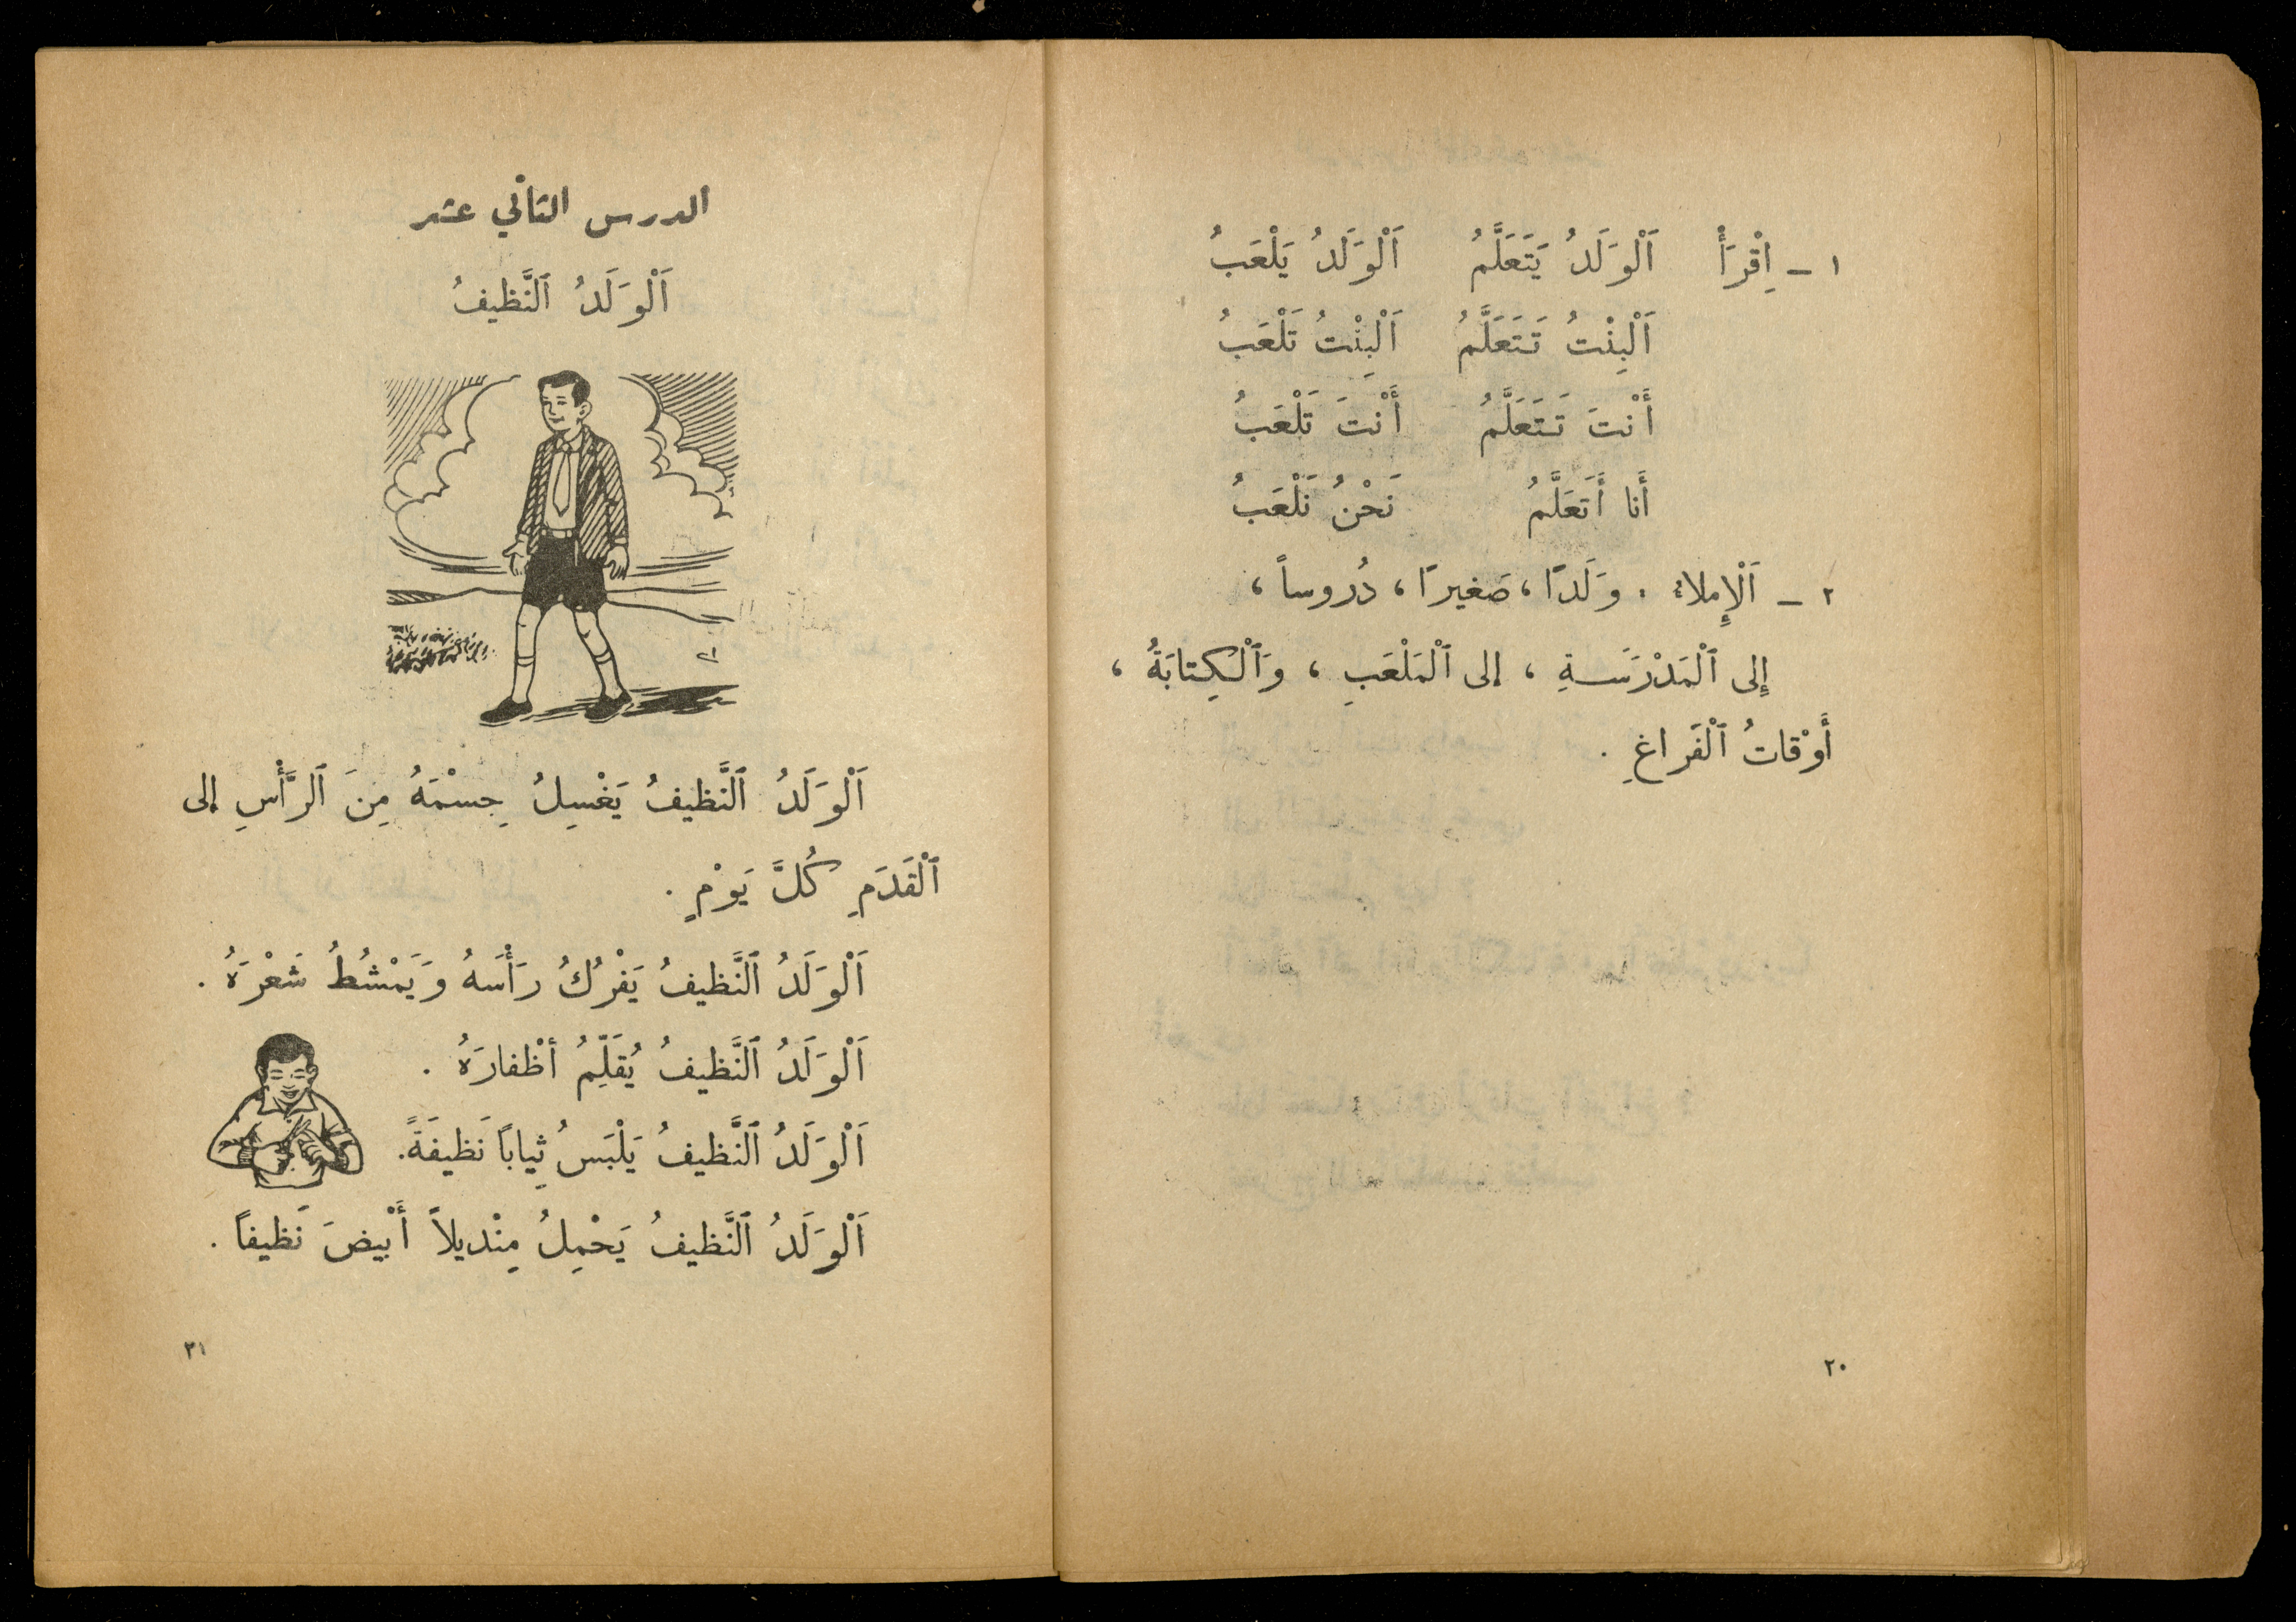 ١ – اِقْرَأْ اَلْوَلَدُ يَتَعَلَّمُ اَلْوَلَدُ يَلْعَبُ
اَلْبِنْتُ تَتَعَلَّمُ اَلْبِنْتُ تَلْعَبُ
أَنْتَ تَتَعَلَّمُ أَنْتَ تَلْعَبُ
أَنا أَتَعَلَّمُ نَحْنُ نَلْعَبُ
٢ – اَلْإِملاء : وَلَدًا ، صَغيرًا ، دُروساً ،
إِلى ٱلْمَدْرَسَةِ ، إلى ٱلْمَلْعَبِ ، وَٱلْكِتابَةُ ،
أَوْقاتُ ٱلْفَراغِ .
٢٠
الدرس الثاني عشر
اَلْوَلَدُ ٱلنَّظيفُ
اَلْوَلَدُ ٱلنَّظيفُ يَغْسِلُ جِسْمَهُ مِنَ ٱلرَّأْسِ إلى
ٱلْقَدَمِ كُلَّ يَوْمٍ .
اَلْوَلَدُ ٱلنَّظيفُ يَفْرُكُ رَأْسَهُ وَيَمْشُطُ شَعْرَهُ .
اَلْوَلَدُ ٱلنَّظيفُ يُقَلِّمُ أظْفارَهُ .
اَلْوَلَدُ ٱلنَّظيفُ يَلْبَسُ ثِياباً نَظيفَةً.
اَلْوَلَدُ ٱلنَّظيفُ يَحْمِلُ مِنْديلاً أَبْيضَ نَظيفاً .
٢١